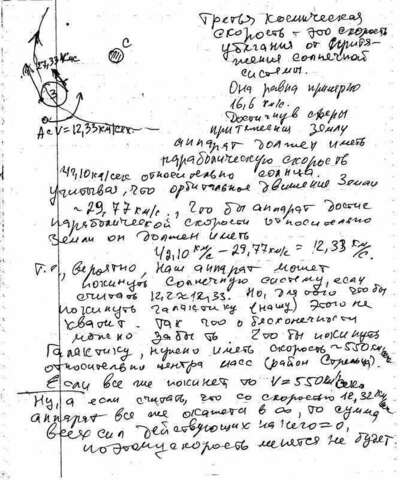 Третья космическая
скорость - это скорость
убегания от притя-
жения солнечной
системы.
Она равна примерно
16,6 км.
Достигнув сферы
притяжения Землю
аппарат должен иметь
параболическую скорость
42,10 км/сек относительно солнца.
учитывая, что орбитальное движение Земли
~ 29,77 км/с., что бы аппарат достиг
параболической скорости относительно
Земли он должен иметь
42,10 км/с - 29,77 км/с = 12,33 км/с.
Т.о., вероятно, наш аппарат может
покинуть Солнечную систему, если
считать 12,2 ≈ 12,33. Но, для того что бы
покинуть галактику (нашу) этого не
хватит. Так что о бесконечности
можно забыть. Что бы покинуть
Галактику, нужно иметь скорость ~550 км/сек
относительно центра масс (район Стрельца).
Если все же покинет то V = 550 км/сек
Ну, а если считать, что со скоростью 12,32 км/с
аппарат все же окажется в ∞, то сумма
всех сил действующих на него = 0,
поэтому скорость менятся не будет
C
27,33 км/с
З
A c V = 12,33 км/сек.